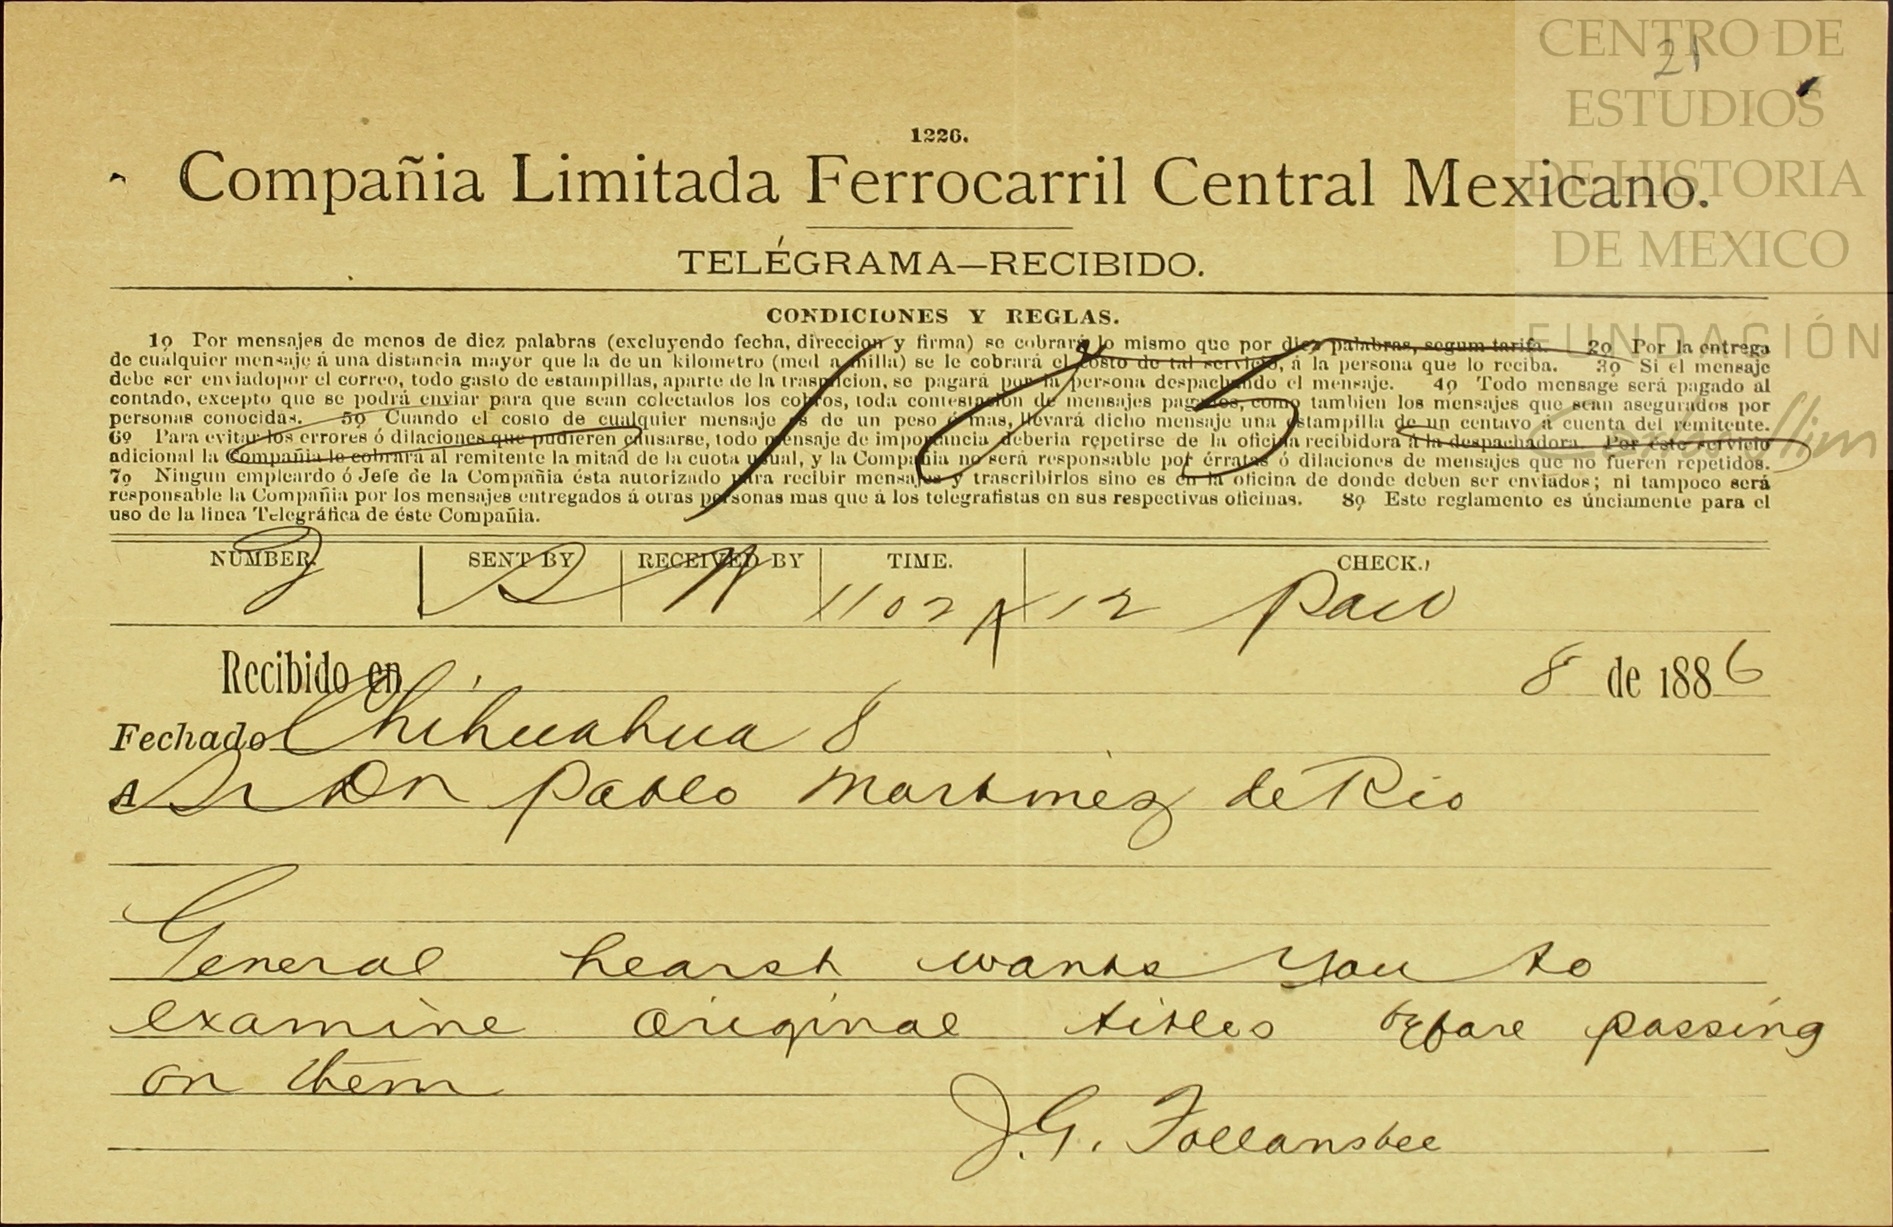 CENTRO DE
21
ESTUDIOS
DE HISTORIA
DE MEXICO
FUNDACIÓN
Carlos Slim
1226.
Compañia Limitada Ferrocarril Central Mexicano.
TELÉGRAMA—RECIBIDO.
CONDICIONES Y REGLAS.
1º Por mensajes de menos de diez palabras (excluyendo fecha, direccion y firma) se cobrará lo mismo que por diez palabras, segum tarifa. 2º Por la entrega
de cualquier mensaje á una distancia mayor que la de un kilometro (med a milla) se le cobrará el costo de tal servicio, á la persona que lo reciba. 3º Si el mensaje
debe ser enviadopor el correo, todo gasto de estampillas, aparte de la trasmicion, se pagará por la persona despachando el mensaje. 4º Todo mensage será pagado al
contado, excepto que se podrá enviar para que sean colectados los cobros, toda contestacion de mensajes pagados, como tambien los mensajes que sean asegurados por
personas conocidas. 5º Cuando el costo de cualquier mensaje es de un peso ó mas, llevará dicho mensaje una estampilla de un centavo á cuenta del remitente.
6º Para evitar los errores ó dilaciones que pudieren causarse, todo mensaje de importancia deberia repetirse de la oficina recibidora á la despachadora. Por éste servicio
adicional la Compañia le cobrará al remitente la mitad de la cuota usual, y la Compañia no será responsable por érratas ó dilaciones de mensajes que no fueren repetidos.
7º Ningun empleardo ó Jefe de la Compañia ésta autorizado para recibir mensajes y trascribirlos sino es en la oficina de donde deben ser enviados; ni tampoco será
responsable la Compañia por los mensajes entregados á otras personas mas que á los telegrafistas en sus respectivas oficinas. 8º Este reglamento es únciamente para el
uso de la linea Telegráfica de éste Compañia.
NUMBER. SENT BY RECEIVED BY TIME. CHECK.
1102 A 12 Paid
Recibido en 8 de 1886
Fechado Chihuahua 8
A Sr Dn Pablo Martinez de Rio
General hearst wants you to
examine original titles before passing
on them
J.G. Follansbee